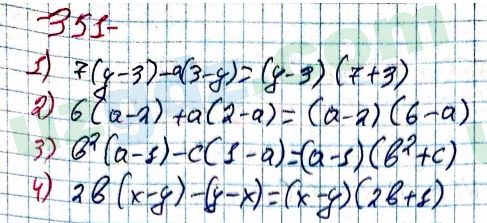 351-
1) 7(y-3)-a(3-y)=(y-3)(7+3)
2) 6(a-2)+a(2-a)=(a-2)(6-a)
3) b²(a-1)-c(1-a)=(a-1)(b²+c)
4) 2b(x-y)-(y-x)=(x-y)(2b+1)